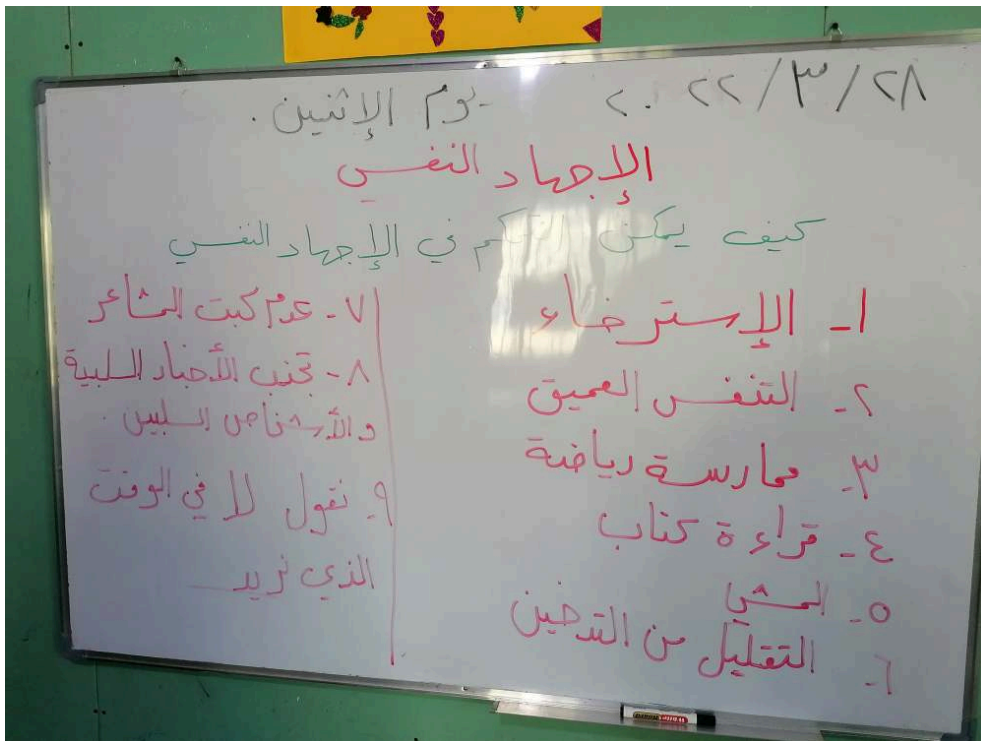 ٢٠٢٢/٣/٢٨ يوم الإثنين.
الإجهاد النفسي
كيف يمكن التحكم في الإجهاد النفسي
١- الإسترخاء
٢- التنفس العميق
٣- ممارسة رياضة
٤- قراءة كتاب
٥- المشي
٦- التقليل من التدخين
٧- عدم كبت المشاعر
٨- تجنب الأخبار السلبية
والأشخاص السلبين.
٩- نقول لا في الوقت
الذي نريد